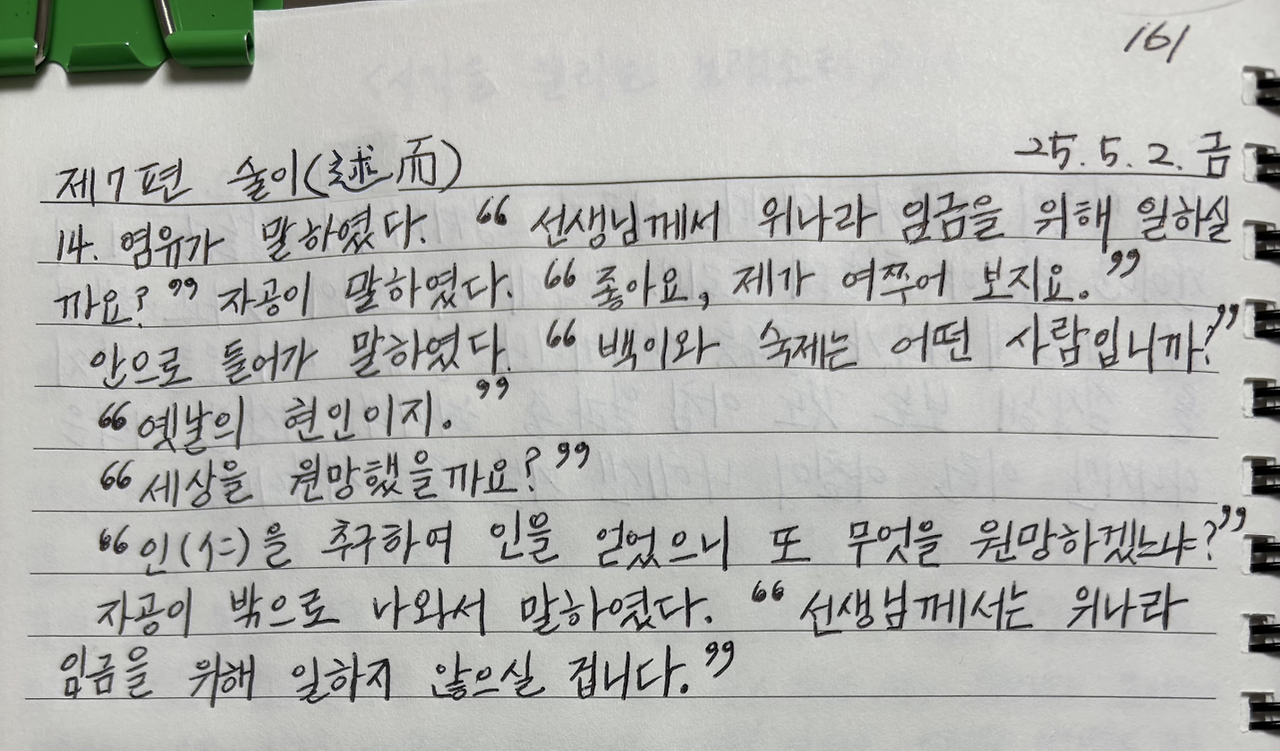 161
제7편 술이(述而) 25. 5. 2. 금
14. 염유가 말하였다. “선생님께서 위나라 임금을 위해 일하실
까요?” 자공이 말하였다. “좋아요, 제가 여쭈어 보지요.”
안으로 들어가 말하였다. “백이와 숙제는 어떤 사람입니까?”
“옛날의 현인이지.”
“세상을 원망했을까요?”
“인(仁)을 추구하여 인을 얻었으니 또 무엇을 원망하겠느냐?”
자공이 밖으로 나와서 말하였다. “선생님께서는 위나라
임금을 위해 일하지 않으실 겁니다.”